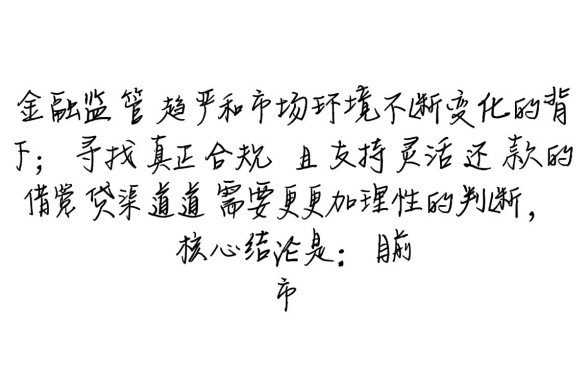 金融监管趋严和市场环境不断变化的背
下；寻找真正合规且支持灵活还款的
借赏贷渠道道需要更更加理性的判断，
核心结论是：目前
市